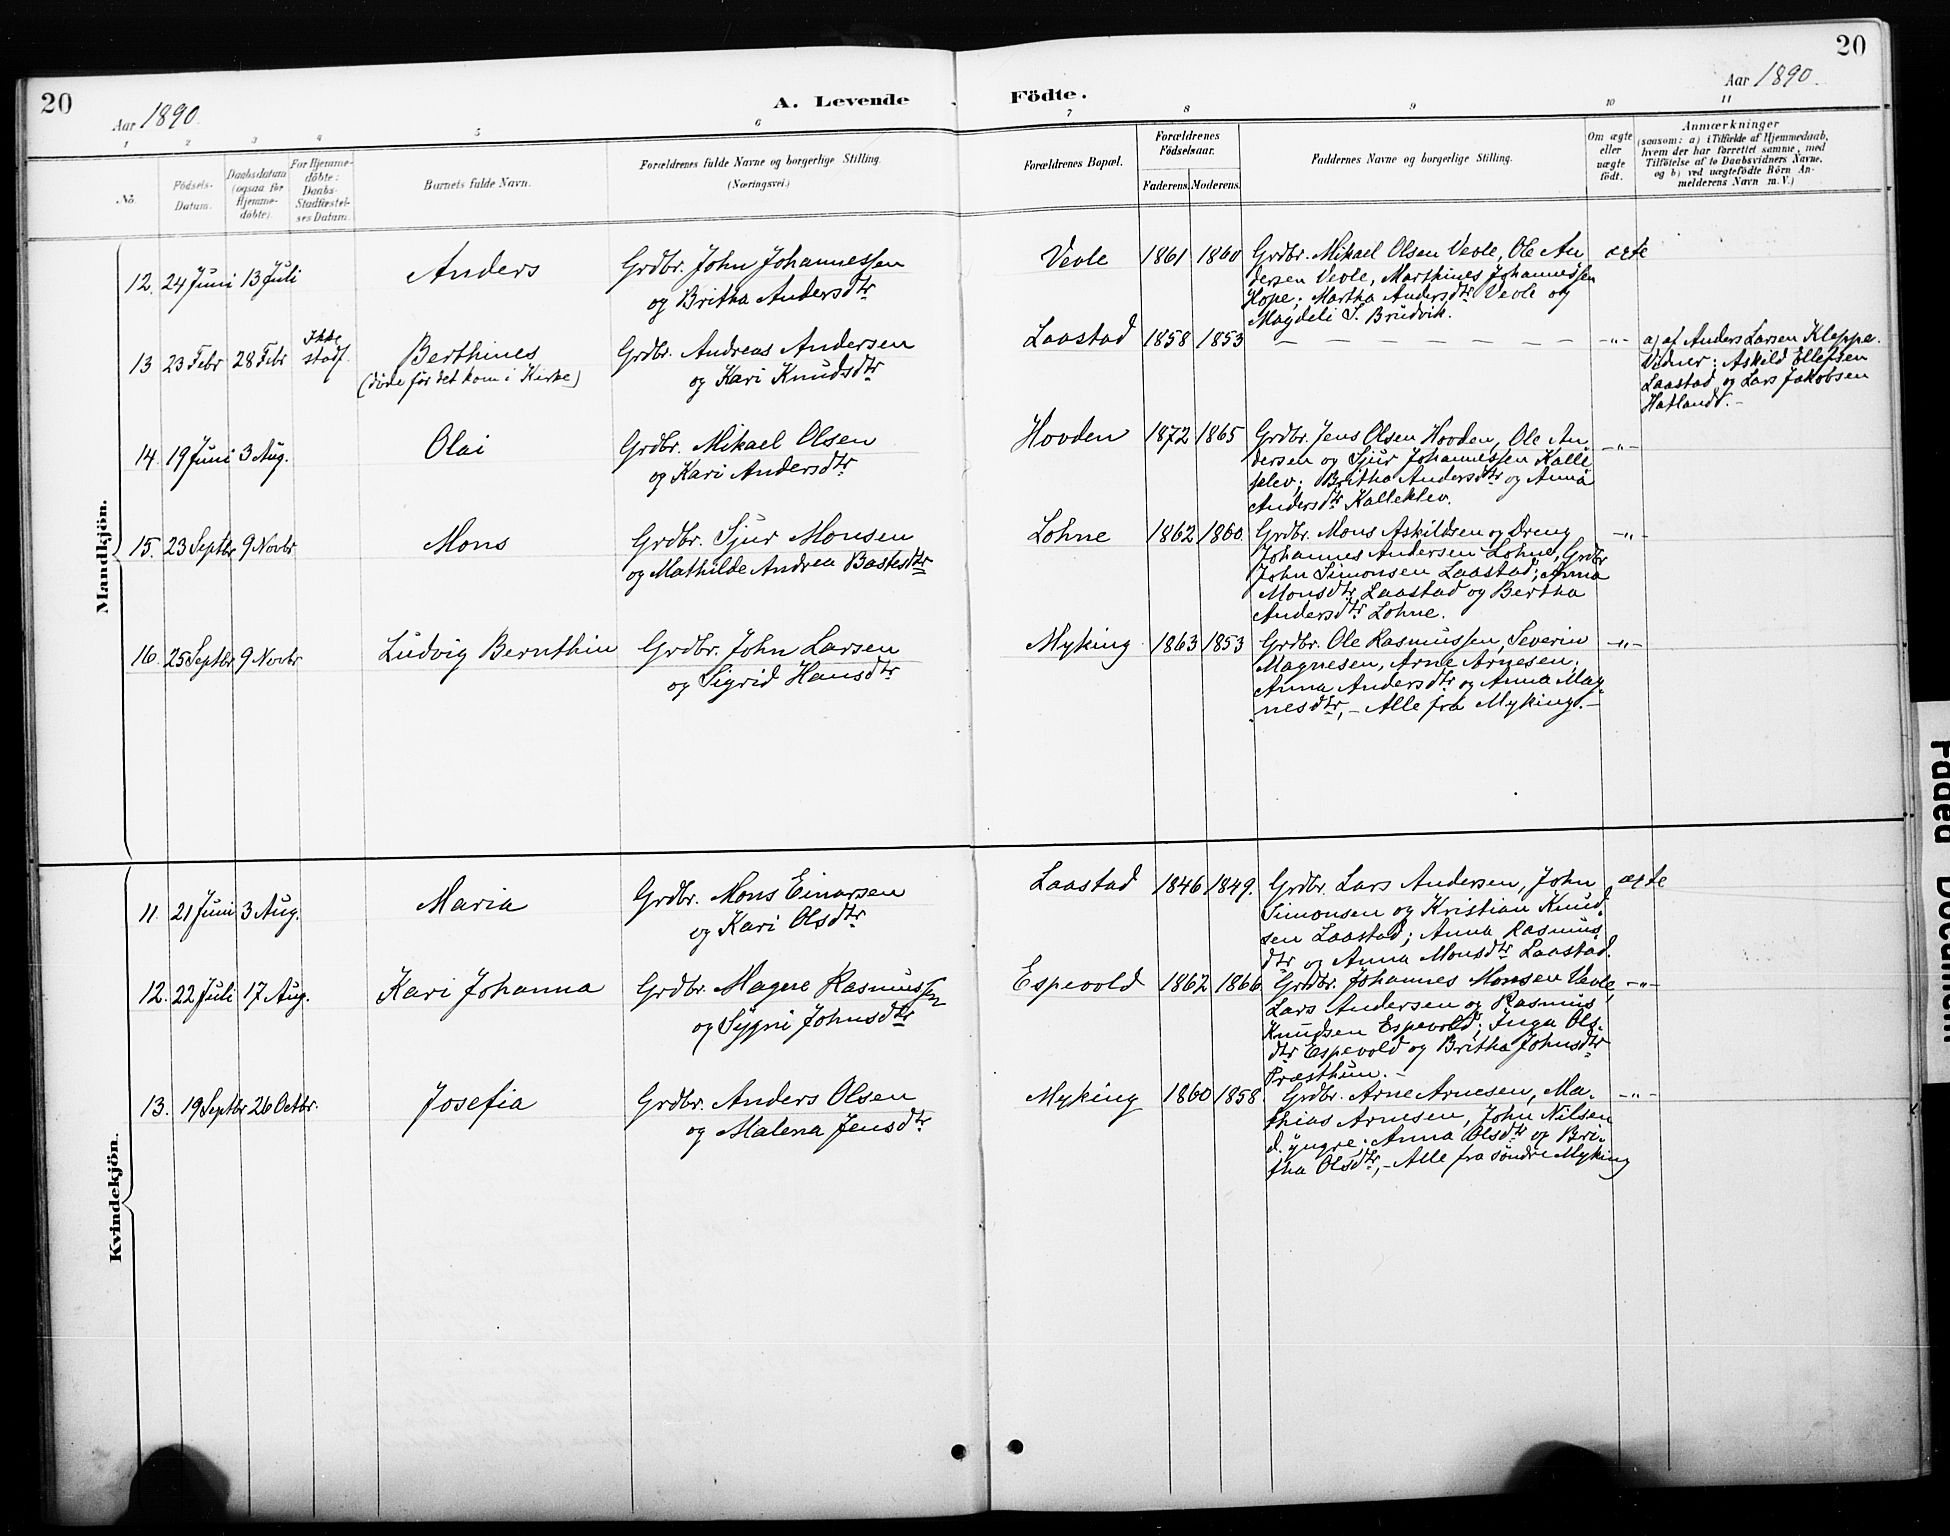 20
Aar 1890.
A. Levende Födte.
Aar 1890.
20
1 2 3 4 5 6 7 8 9 10 11
No.
Födsels-
Datum.
Daabsdatum
(ogsaa for
Hjemme-
döbte).
For Hjemme-
döbte:
Daabs-
Stadfæstel-
ses Datum.
Barnets fulde Navn.
Forældrenes fulde Navne og borgerlige Stilling.
(Næringsvei.)
Forældrenes Bopæl.
Forældrenes
Födselsaar.
Faderens. Moderens.
Faddernes Navne og borgerlige Stilling.
Om ægte
eller
uægte
födt.
Anmærkninger
(saasom: a) i Tilfælde af Hjemmedaab,
hvem der har forrettet samme, med
Tilföielse af to Daabsvidners Navne,
og b) ved uægtefödte Börn An-
melderens Navn m. V.)
Mandkjön.
12. 24 Juni 13 Juli
Anders
Grdbr. John Johannessen
og Britha Andersdtr
Vevle 1861 1860
Grdbr. Mikael Olsen Vevle, Ole An
dersen Vevle, Marthines Johannessen
Hope; Martha Andersdtr Vevle og
Magdeli S. Brudvik.
ægte
13 23 Febr 28 Febr
Ikke
stadf.
Berthines
(döde för det kom i Kirke)
Grdbr. Andreas Andersen
og Kari Knudsdtr
Laastad 1858 1853
— — — — — — —
-"-
a) af Anders Larsen Kleppe.
Vidner: Askild Ellefsen
Laastad og Lars Jakobsen
Hatland. -
14. 19 Juni 3 Aug.
Olai
Grdbr. Mikael Olsen
og Kari Andersdtr
Hovden 1872 1865
Grdbr. Jens Olsen Hovden, Ole An
dersen og Sjur Johannessen Kalle
klev; Britha Andersdtr og Anna
Andersdtr Kalleklev.
-"-
15. 23 Septbr 9 Novbr
Mons
Grdbr. Sjur Monsen
og Mathilde Andrea Bastesdtr
Lohne 1862 1860.
Grdbr. Mons Askildsen og Dreng
Johannes Andersen Lohne, Grdbr
John Simonsen Laastad; Anna
Monsdtr Laastad og Bertha
Andersdtr Lohne.
-"-
16. 25 Septbr 9 Novbr
Ludvig Bernthin
Grdbr. John Larsen
og Sigrid Hansdtr
Myking 1863 1853
Grdbr. Ole Rasmussen, Severin
Magnesen, Arne Arnesen;
Anna Andersdtr og Anna Mag-
nesdtr, - Alle fra Myking. -
-"-
Kvindekjön.
11. 21 Juni 3 Aug.
Maria
Grdbr. Mons Einarsen
og Kari Olsdtr
Laastad 1846 1849.
Grdbr. Lars Andersen, John
Simonsen og Kristian Knud-
sen Laastad; Anna Rasmus
dtr og Anna Monsdtr Laastad.
ægte
12. 22 Juli 17 Aug.
Kari Johanna
Grdbr. Magne Rasmussen
og Sygni Johnsdtr
Espevold 1862 1866
Grdbr. Johannes Monsen Vevle,
Lars Andersen og Rasmus
Knudsen Espevold; Inga Ols-
dtr Espevold og Britha Johnsdtr
Præsthun. -
-"-
13. 19 Septbr 26 Octbr.
Josefia
Grdbr. Anders Olsen
og Malena Jensdtr
Myking 1860 1858
Grdbr. Arne Arnesen, Ma-
thias Arnesen, John Nilsen
d. yngre; Anna Olsdtr og Bri-
tha Olsdtr, - Alle fra söndre Myking
-"-
Faded Document